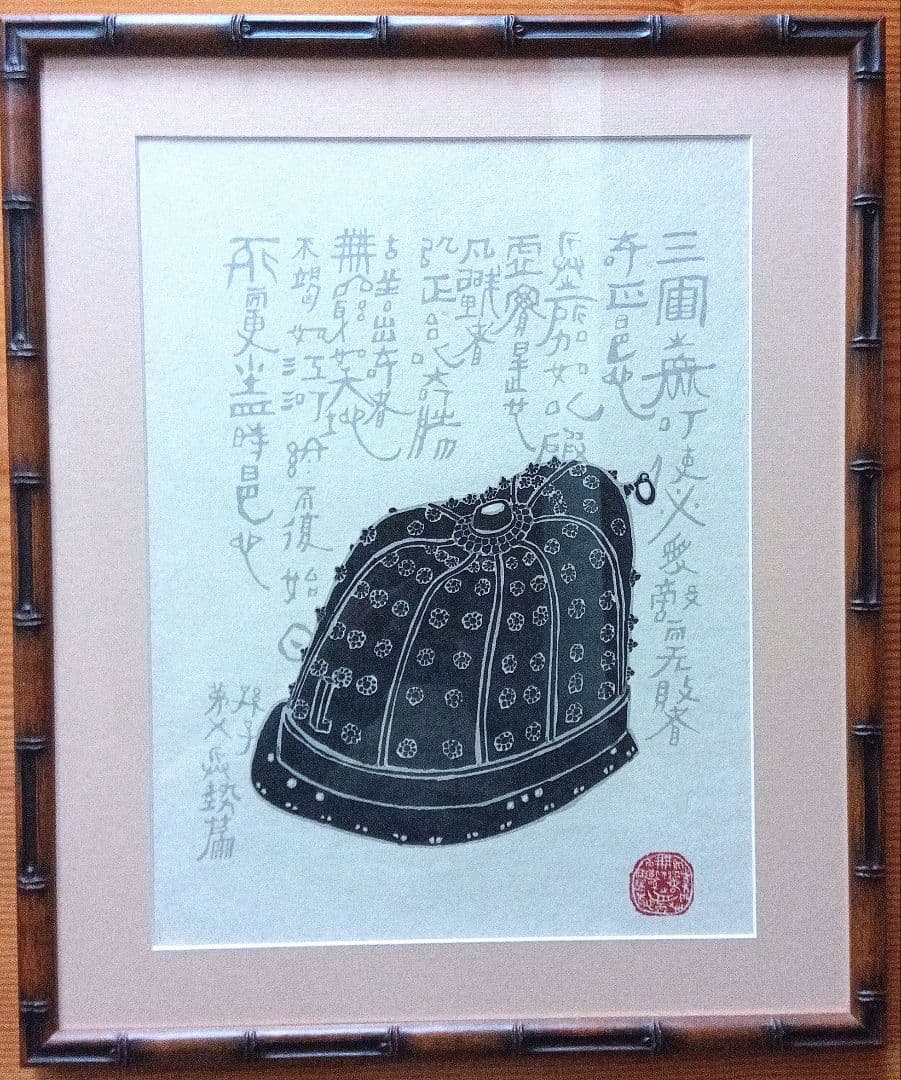 三軍之衆可使必受敵而无敗者
奇正是也
兵之所加如以碬
虚實是也
凡戰者
以正合以奇勝
故善出奇者
無窮如天地
不竭如江河終而復始日
死而更生四時是也
孫子
第五兵勢篇